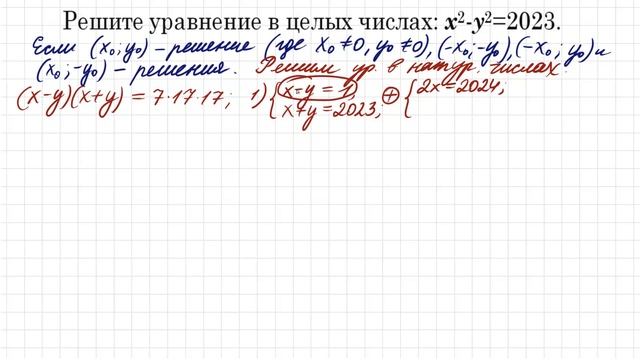 Решите уравнение в целых числах: x²-y²=2023.
Если (x₀; y₀) – решение (где x₀ ≠ 0, y₀ ≠ 0), (-x₀; -y₀), (-x₀; y₀) и
(x₀; -y₀) – решения. Решим ур. в натур. числах:
(x-y)(x+y) = 7·17·17; 1) { x-y = 1, ⊕ { 2x = 2024;
x+y = 2023,